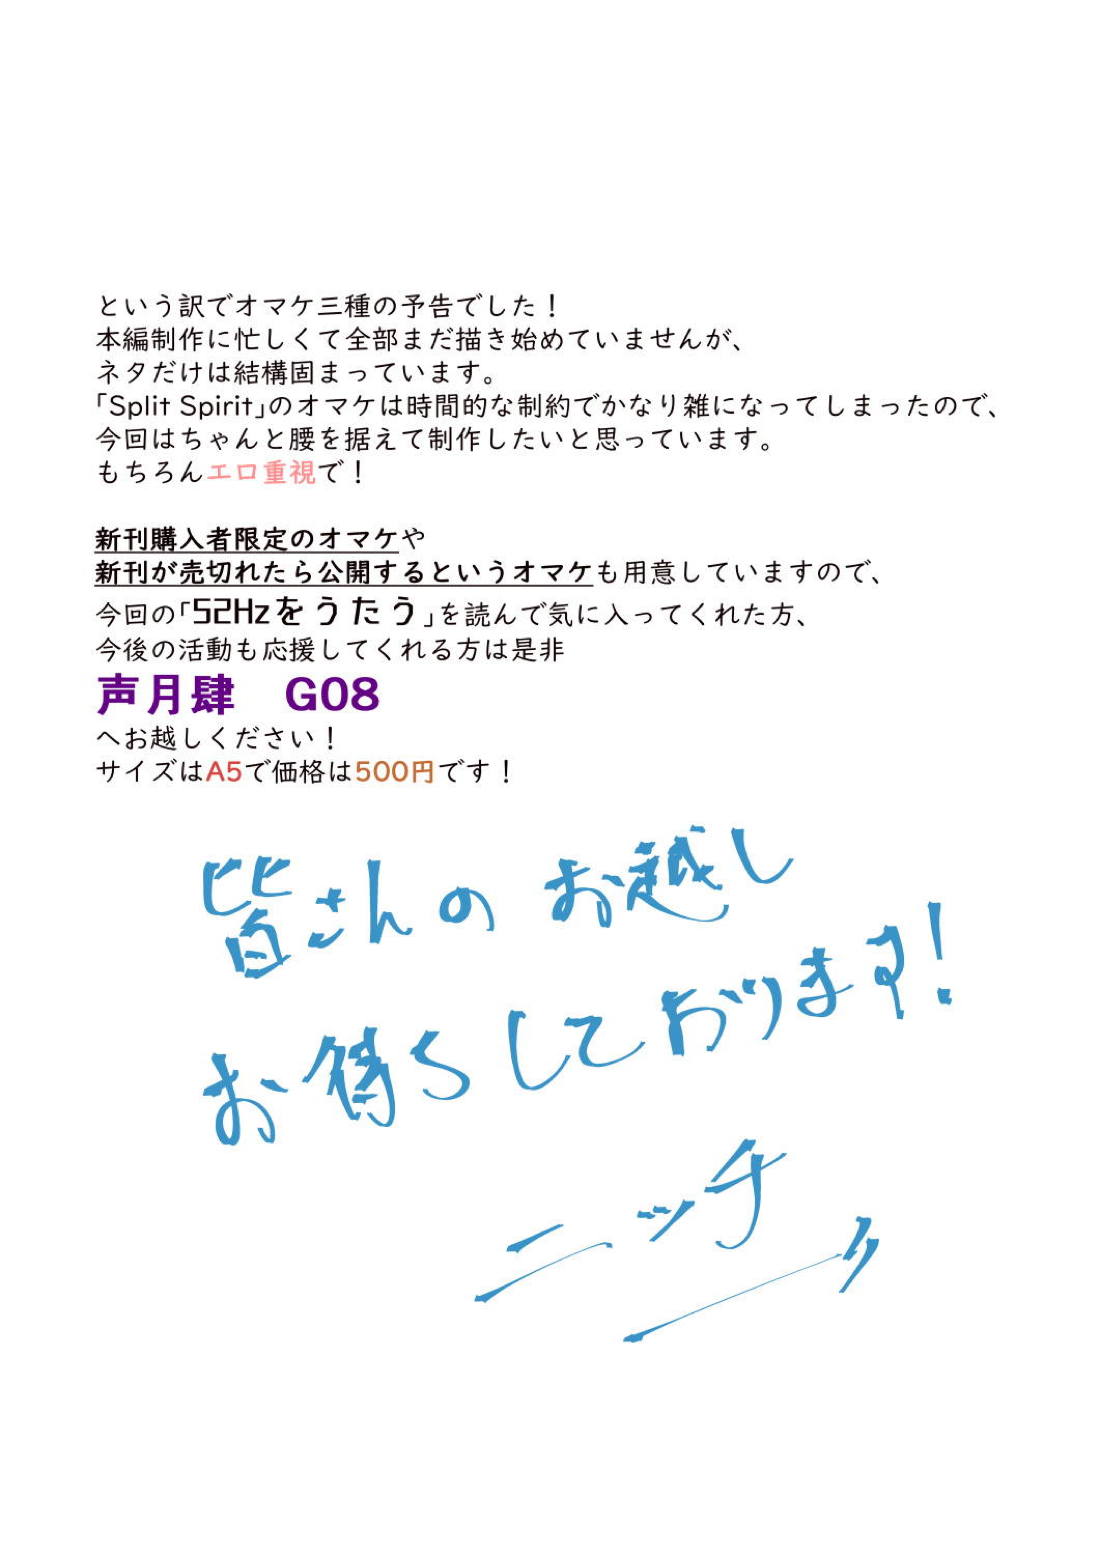 という訳でオマケ三種の予告でした！
本編制作に忙しくて全部まだ描き始めていませんが、
ネタだけは結構固まっています。
「Split Spirit」のオマケは時間的な制約でかなり雑になってしまったので、
今回はちゃんと腰を据えて制作したいと思っています。
もちろんエロ重視で！
新刊購入者限定のオマケや
新刊が売切れたら公開するというオマケも用意していますので、
今回の「52Hzをうたう」を読んで気に入ってくれた方、
今後の活動も応援してくれる方は是非
声月肆　G08
へお越しください！
サイズはA5で価格は500円です！
皆さんのお越し
お待ちしております！
ニッチ